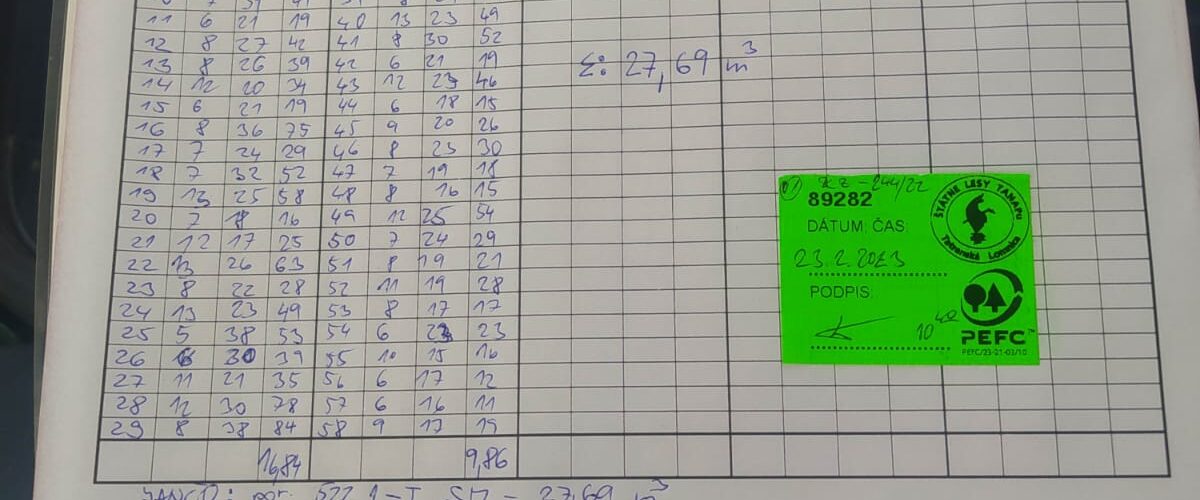 11 6 21 19 40 13 23 49
12 8 27 42 41 8 30 52
13 8 26 39 42 6 21 19
14 12 20 34 43 12 23 46
15 6 21 19 44 6 18 15
16 8 36 75 45 9 20 26
17 7 24 29 46 8 23 30
18 7 32 52 47 7 19 18
19 13 25 58 48 8 16 15
20 7 18 16 49 12 25 54
21 12 17 25 50 7 24 29
22 13 26 63 51 8 19 21
23 8 22 28 52 11 19 28
24 13 23 49 53 8 17 17
25 5 38 53 54 6 23 23
26 6 30 39 55 10 15 16
27 11 21 35 56 6 17 12
28 12 30 78 57 6 16 11
29 8 38 84 58 9 17 19
16,84 9,86
Σ: 27,69 m³
89282
DÁTUM, ČAS:
23.2.2023
PODPIS:
10 40
ŠTÁTNE LESY TANAPu
Tatranská Lomnica
PEFC™
PEFC/23-21-03/10
27,69 m³